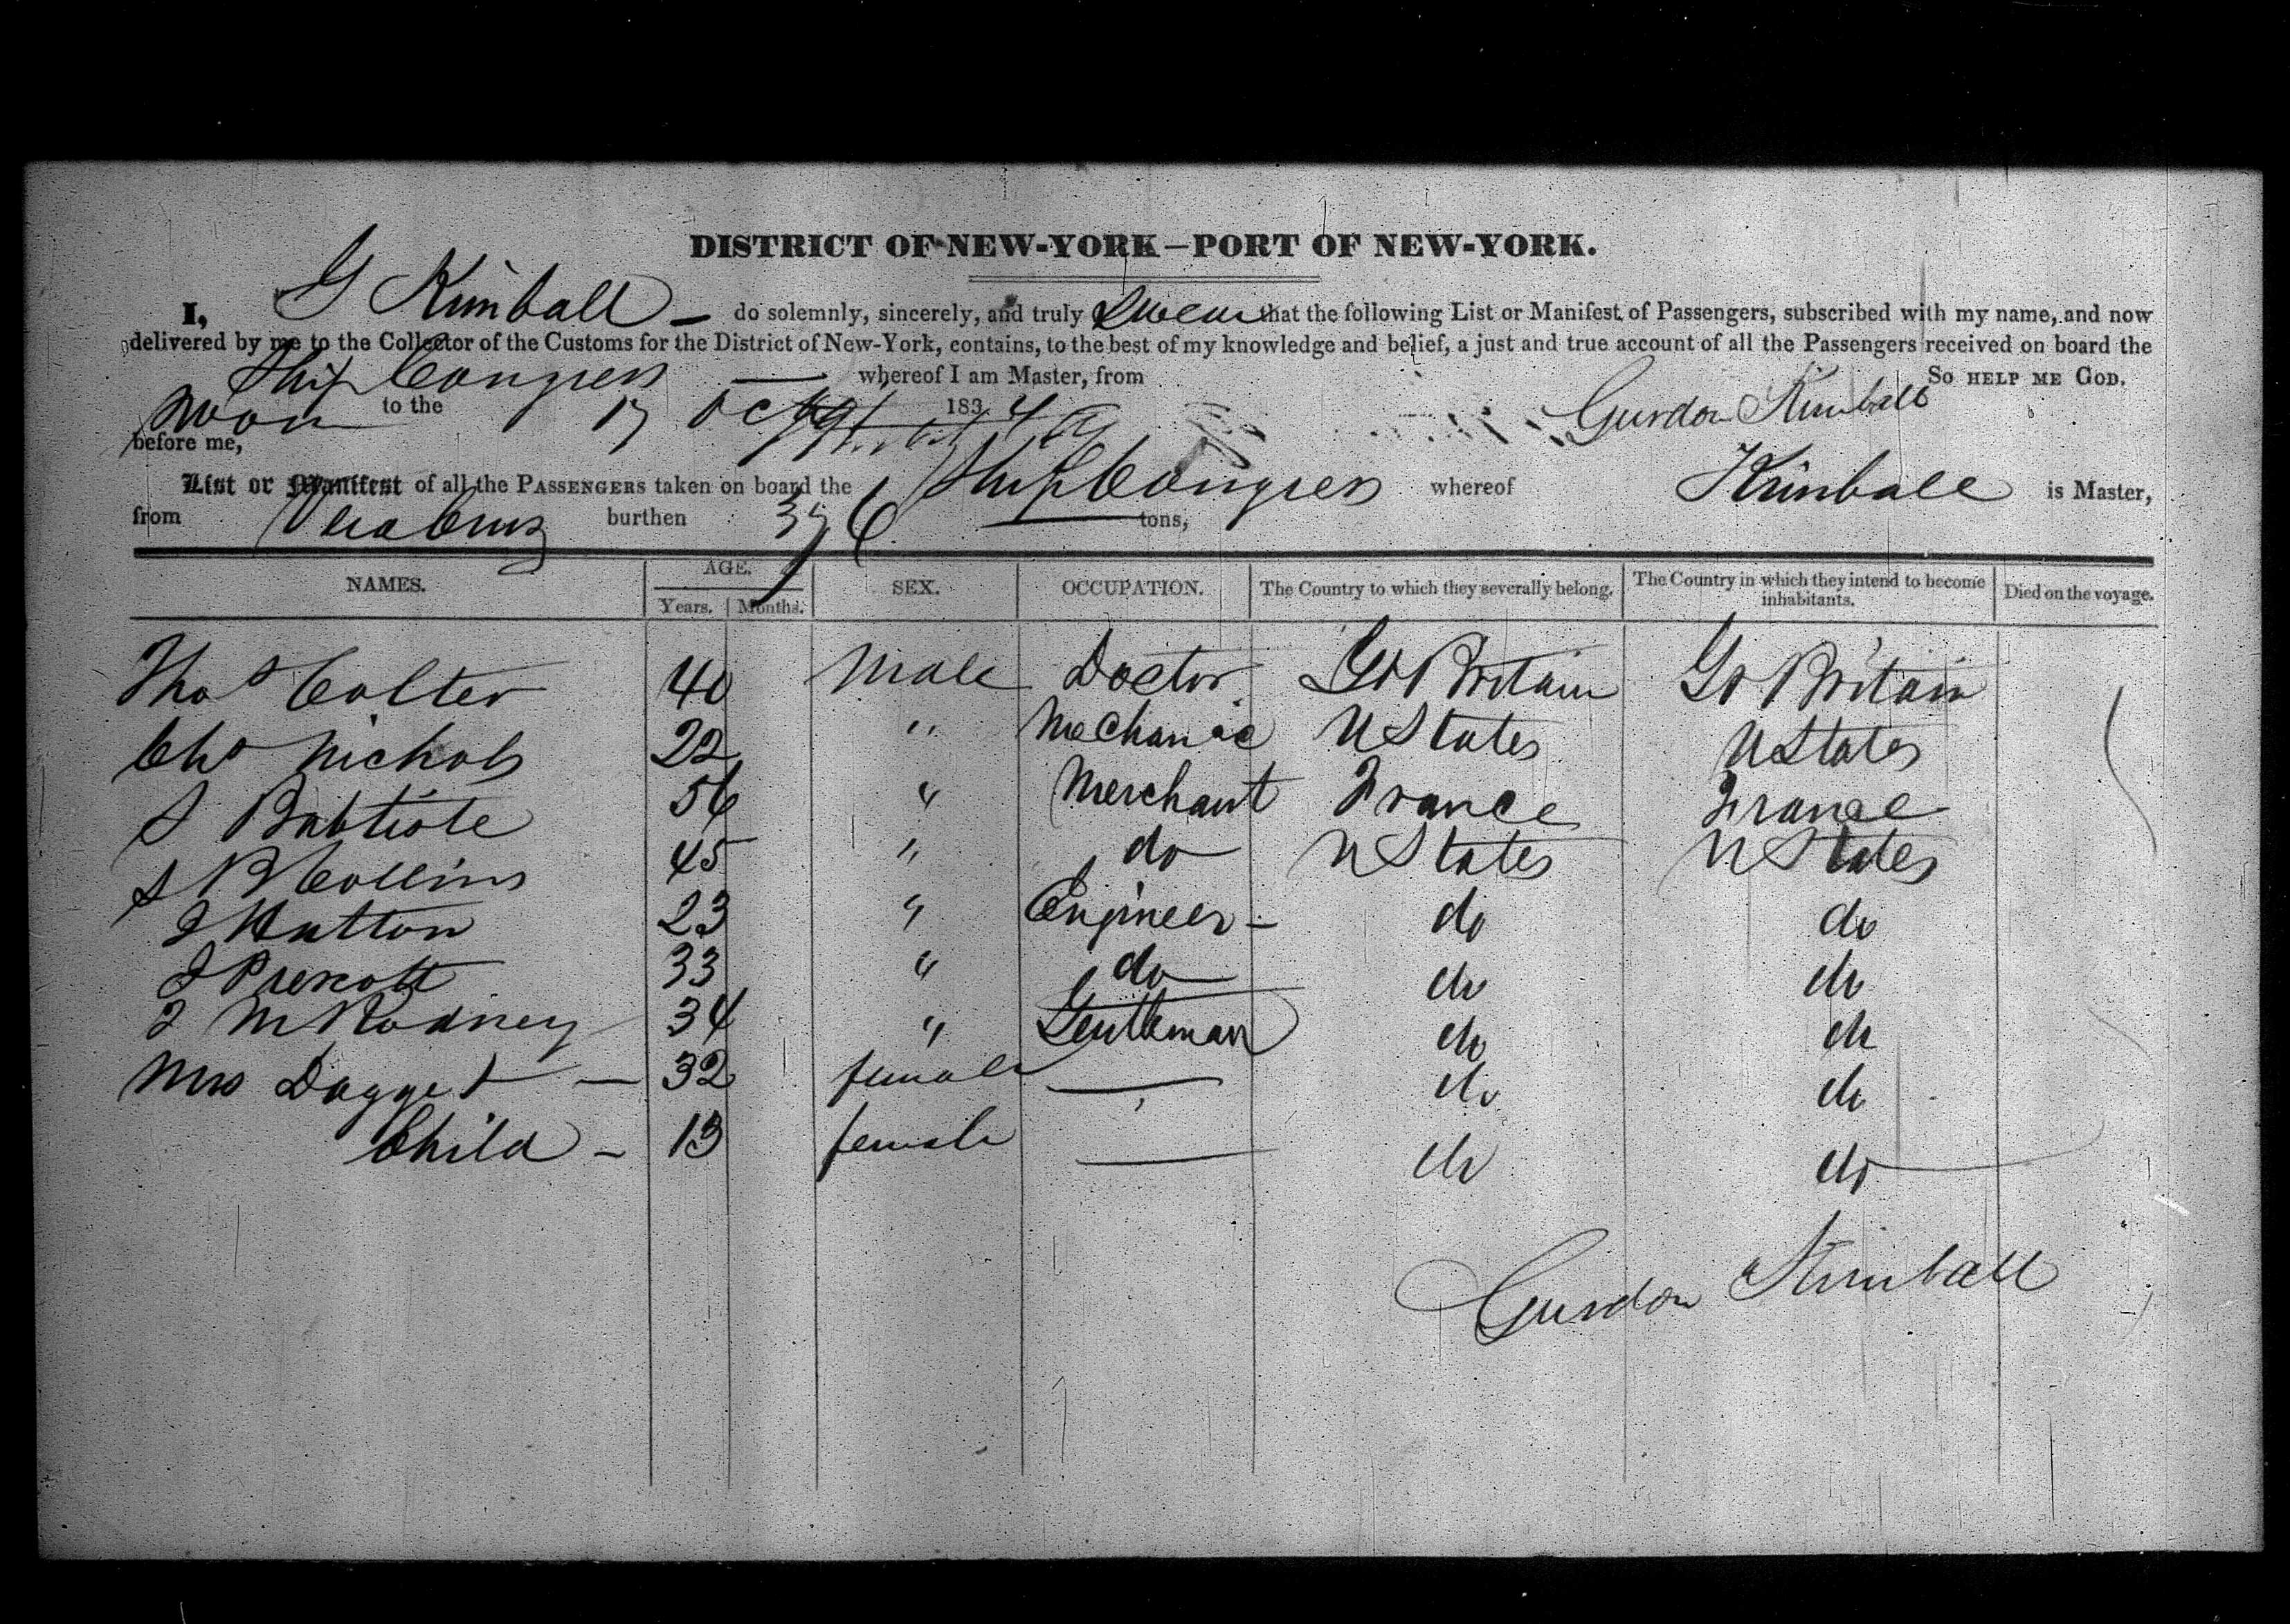 DISTRICT OF NEW-YORK—PORT OF NEW-YORK.
I, G Kimball — do solemnly, sincerely, and truly Swear that the following List or Manifest of Passengers, subscribed with my name, and now
delivered by me to the Collector of the Customs for the District of New-York, contains, to the best of my knowledge and belief, a just and true account of all the Passengers received on board the
Ship Congress — whereof I am Master, from So HELP ME GOD.
Sworn to the 17 Oct 1834 Gurdon Kimball
before me,
List or Manifest of all the PASSENGERS taken on board the Ship Congress whereof Kimball is Master,
from Vera Cruz burthen 376 tons,
NAMES. AGE. Years. Months. SEX. OCCUPATION. The Country to which they severally belong. The Country in which they intend to become inhabitants. Died on the voyage.
Thos Colter 40 Male Doctor Gt Britain Gt Britain
Chs Nichols 22 " Mechanic U States U States
S Babtiste 56 " Merchant France France
S B Collins 45 " do U States U States
J Hutton 23 " Engineer — do do
J Prescott 33 " do do do
J M Rodney 34 " Gentleman do do
Mrs Dagget — 32 female — do do
Child — 13 female — do do
Gurdon Kimball